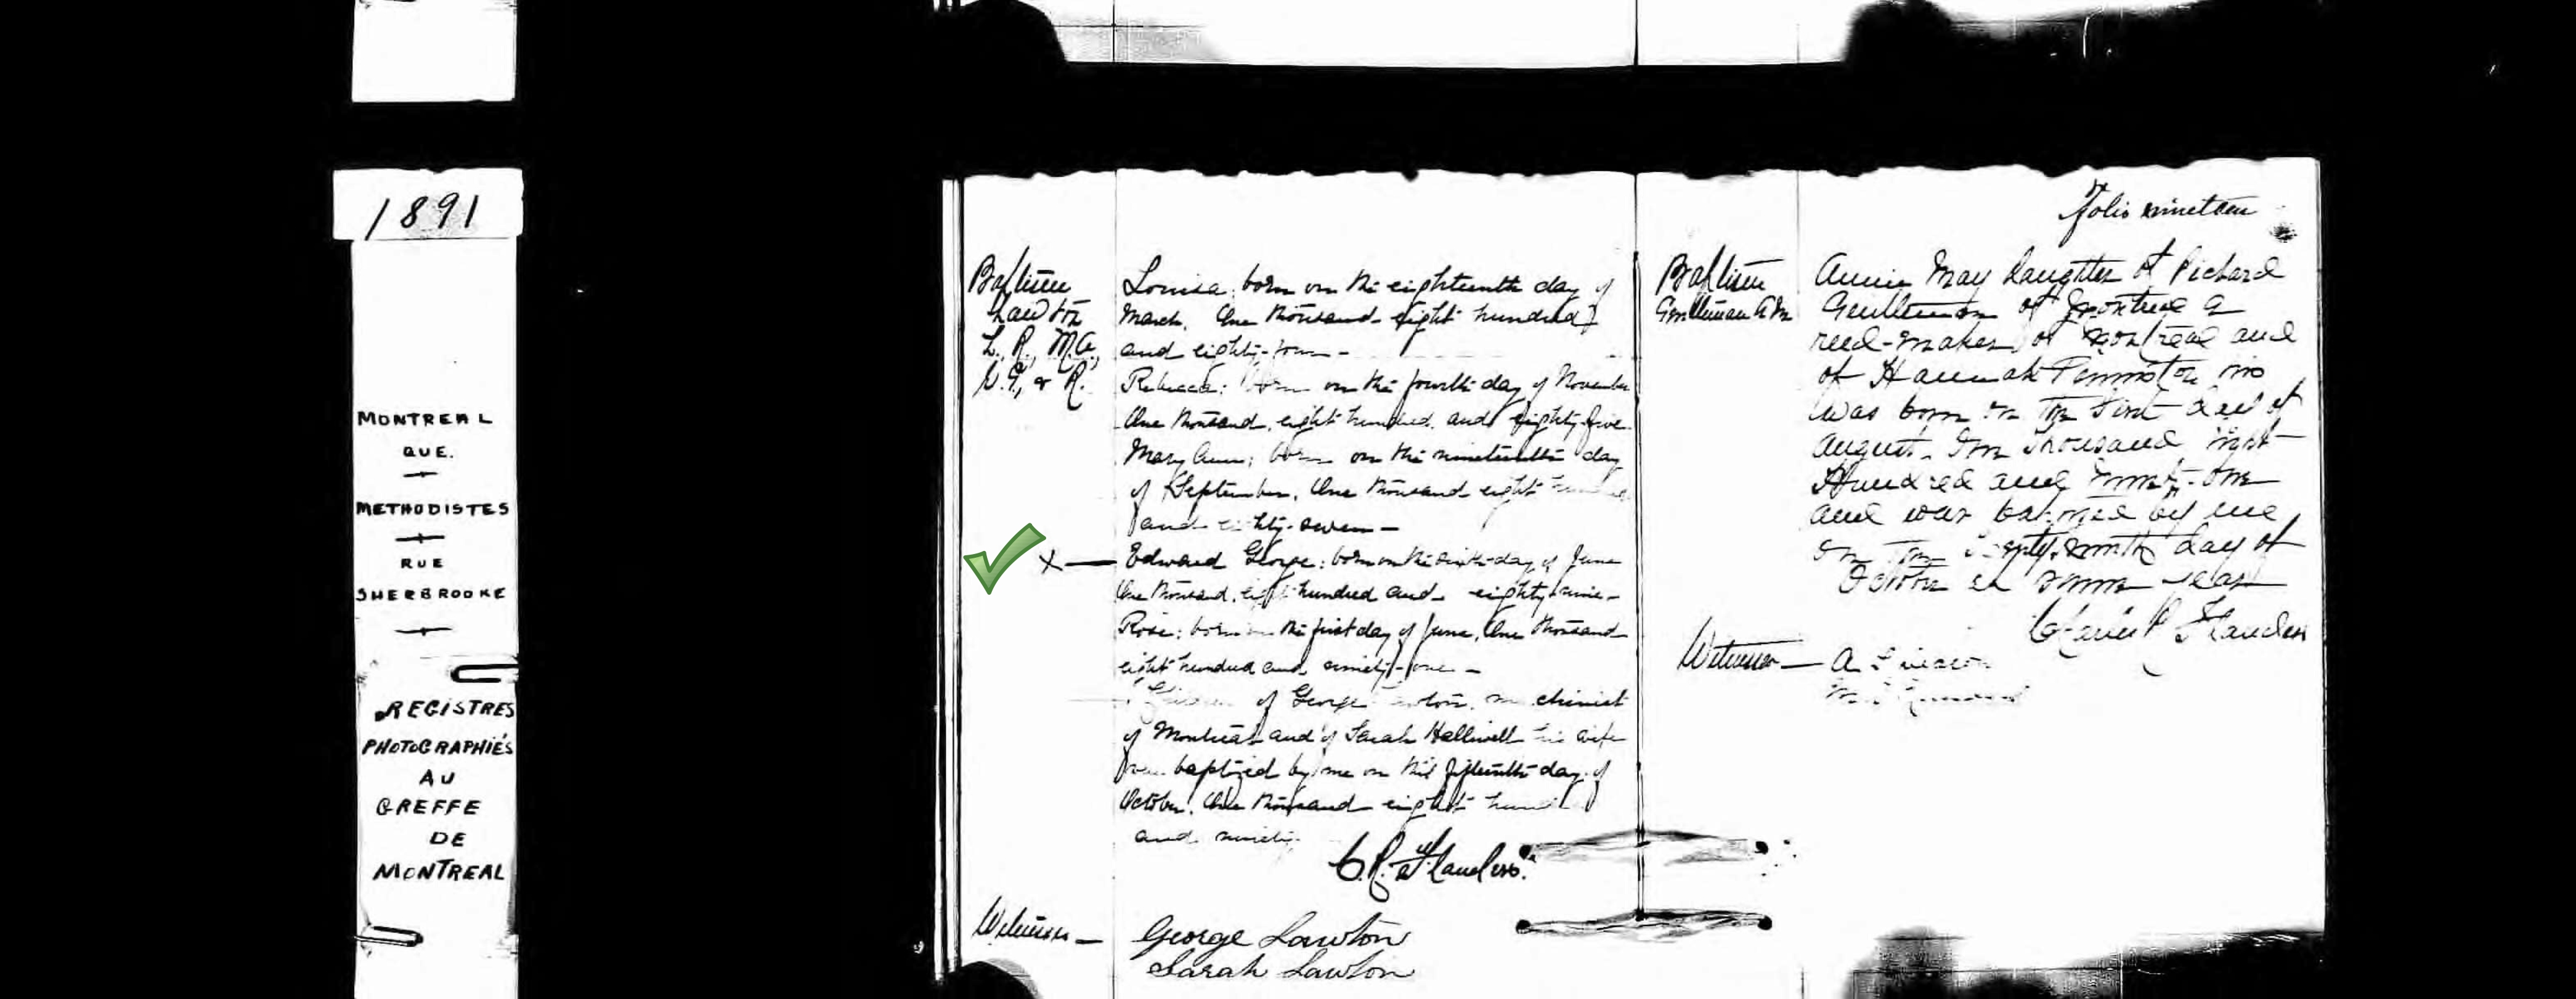 1891
MONTREAL
QUE.
METHODISTES
RUE
SHERBROOKE
REGISTRES
PHOTOGRAPHIÉS
AU
GREFFE
DE
MONTREAL
Baptism
Lawton
L., R., M.A.,
E.G., & R.
Louisa; born on the eighteenth day of
March, One thousand eight hundred
and eighty-four -
Rebecca; born on the fourth day of November
One thousand, eight hundred, and eighty-five
Mary Ann; born on the nineteenth day
of September, One thousand eight hundred
and eighty-seven -
X — Edward George; born on the sixth day of June
One thousand, eight hundred and eighty-nine -
Rose; born on the first day of June, One thousand
eight hundred and ninety-one -
Children of George Lawton, machinist
of Montreal and of Sarah Halliwell his wife
were baptized by me on this fifteenth day of
October, One thousand eight hundred
and ninety
C. R. Flanders.
Witnesses — George Lawton
Sarah Lawton
Folio nineteen
Baptism
Gentleman A M
Annie May daughter of Richard
Gentleman of Montreal a
reed-maker of Montreal and
of Hannah his
was born on the first day of
August One thousand eight
Hundred and ninety-one
and was baptized by me
on the day of
October in same year
Charles R Flanders
Witnesses — A